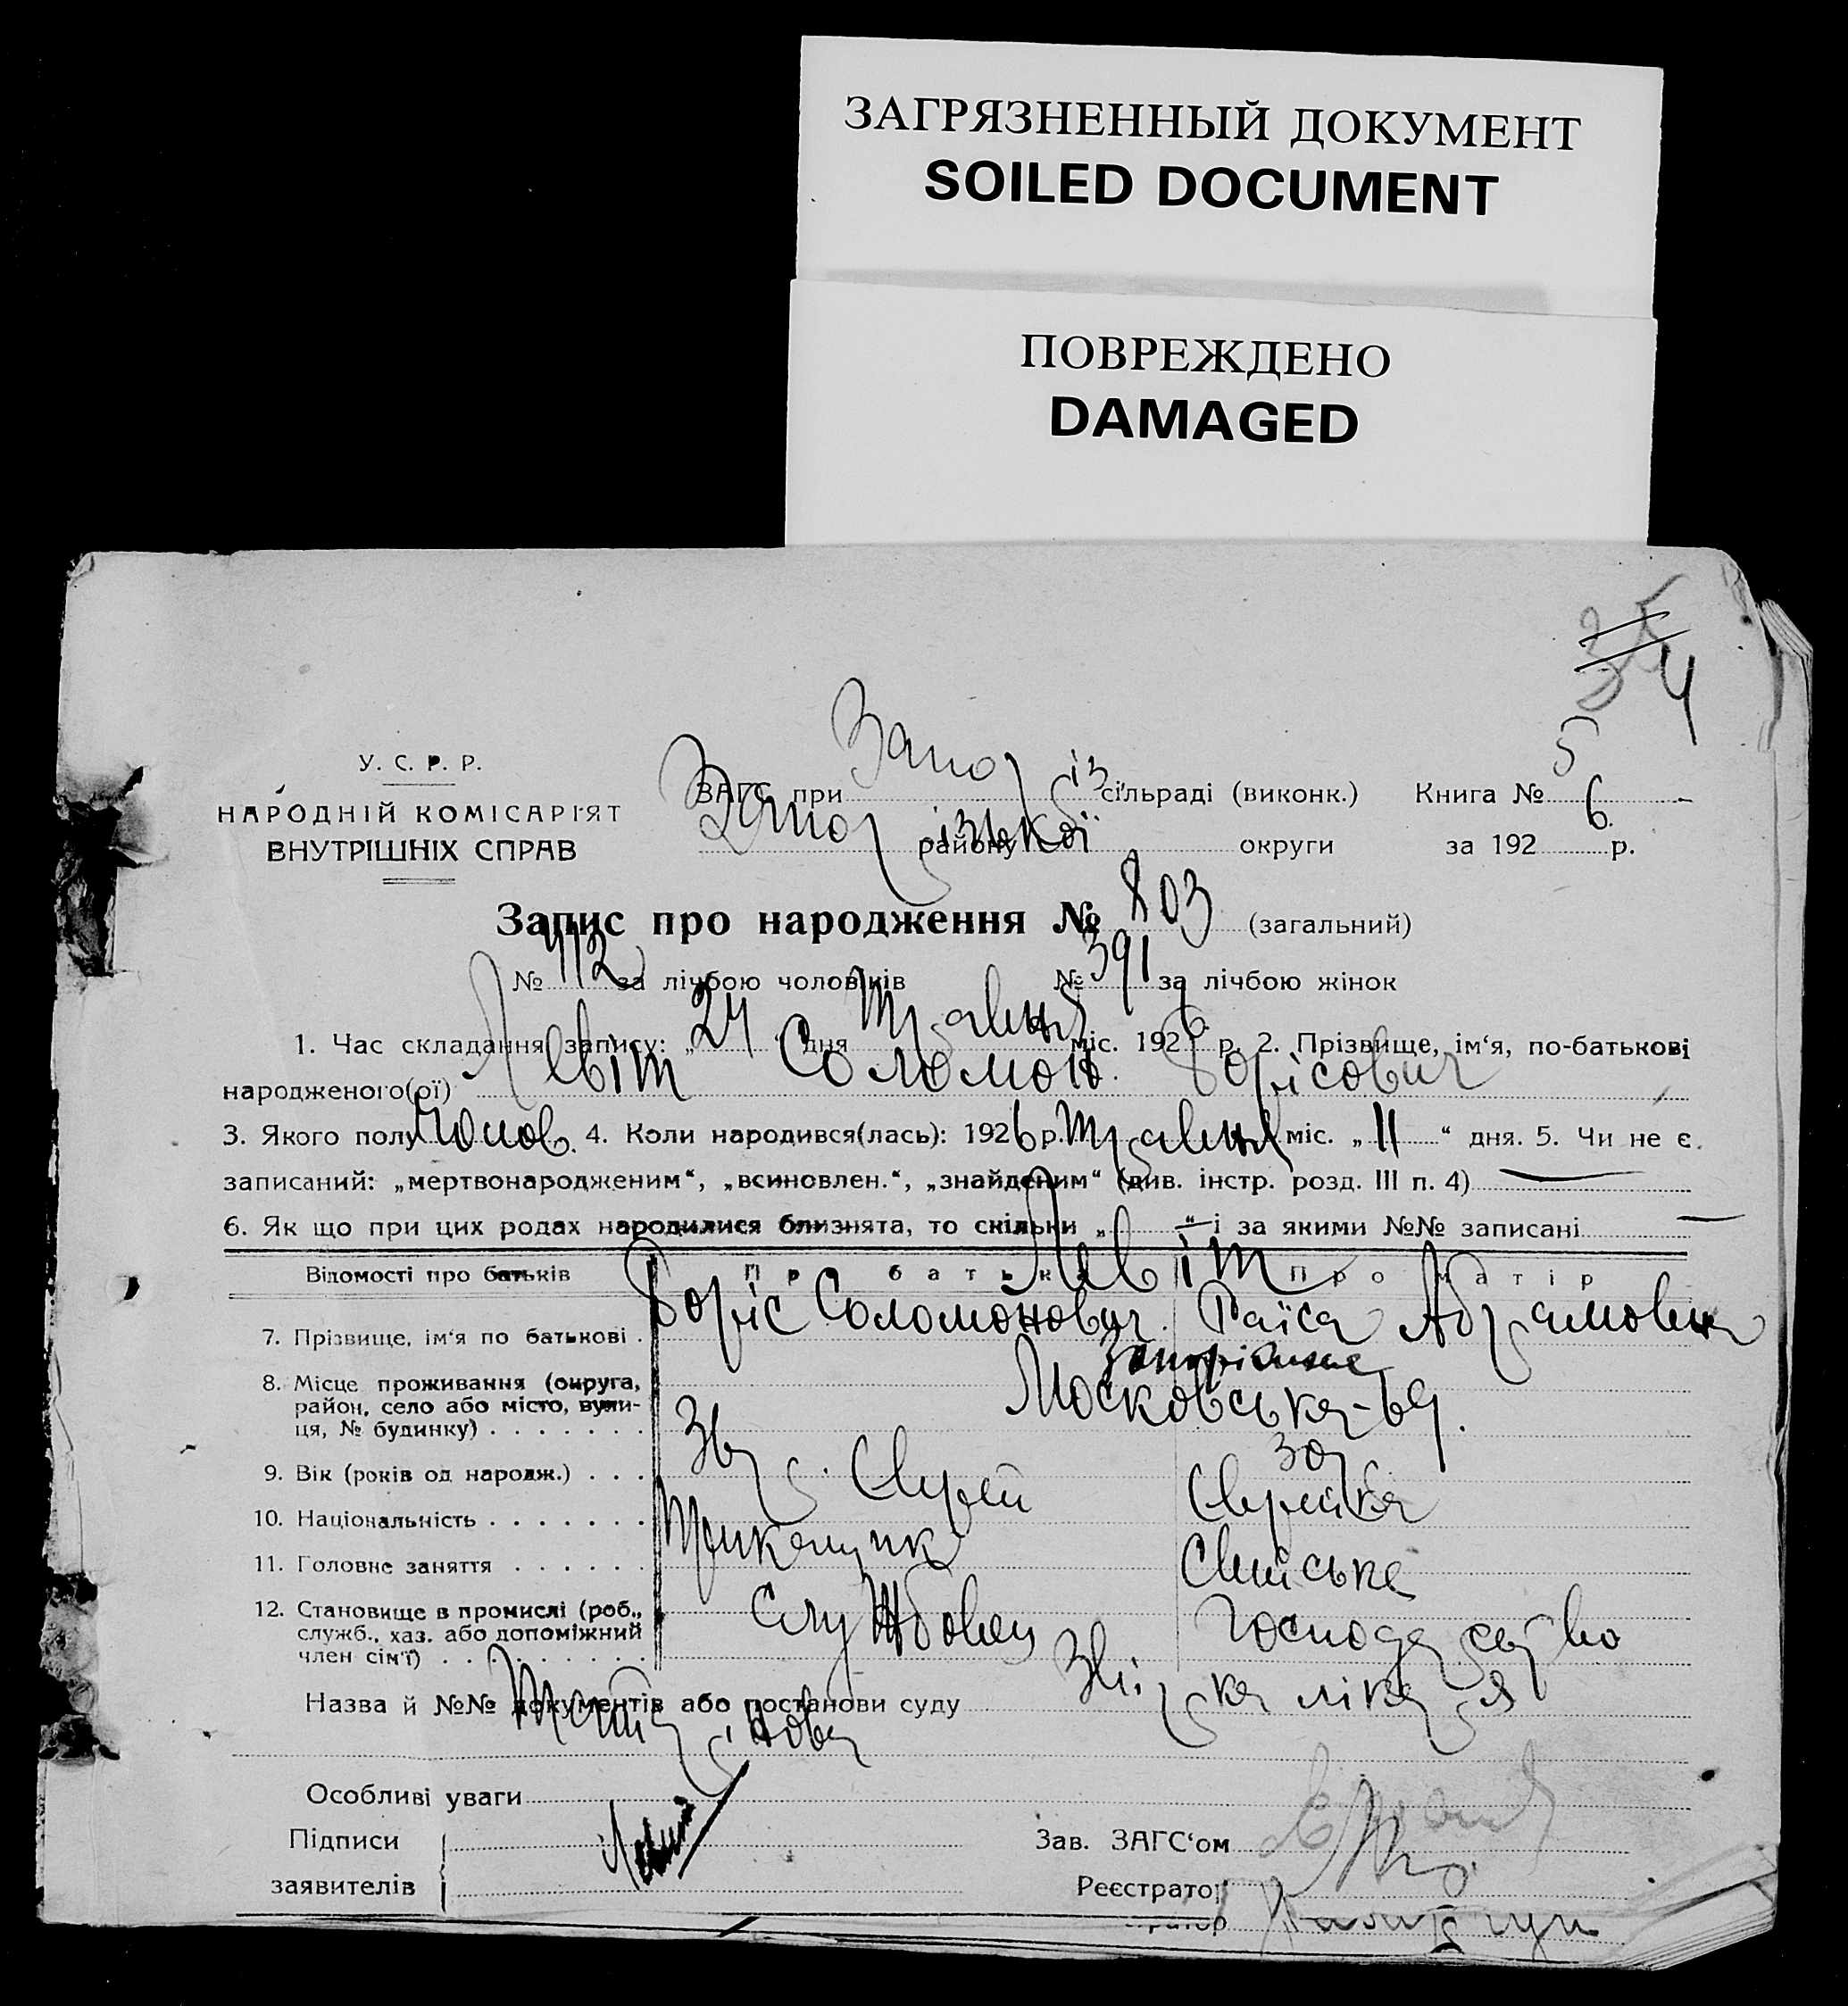 ЗАГРЯЗНЕННЫЙ ДОКУМЕНТ
SOILED DOCUMENT
ПОВРЕЖДЕНО
DAMAGED
4
У. С. Р. Р.
НАРОДНІЙ КОМІСАРІЯТ
ВНУТРІШНІХ СПРАВ
ЗАГС при Запоріз. сільраді (виконк.) Книга № 5
Запорізької району округи за 1926 р.
Запис про народження № 803 (загальний)
№ 412 за лічбою чоловіків № 391 за лічбою жінок
1. Час складання запису: „24 дня травня міс. 1926 р. 2. Прізвище, ім‘я, по-батькові
народженого(ої) Левіт Соломон Борісович
3. Якого полу чолов. 4. Коли народився(лась): 1926 р. травня міс. „11“ дня. 5. Чи не є
записаний: „мертвонародженим“, „всиновлен.“, „знайденим“ (див. інстр. розд. III п. 4) —
6. Як що при цих родах народилися близнята, то скільки „—“ і за якими №№ записані —
Відомості про батьків Про батька Про матір
Левіт
7. Прізвище, ім‘я по батькові . Боріс Соломонович Раїса Абрамовна
8. Місце проживання (округа, район, село або місто, вули-ця, № будинку) . . . . . . . Запоріжжя
Московська-
9. Вік (років од народж.) . . . 30 р.
10. Національність . . . . . . . Єврей Єврейка
11. Головне заняття . . . . . . Прикащик Семійське
12. Становище в промислі (роб., служб., хаз. або допоміжний член сім‘ї) . . . . . . . . . Службовец господарство
Назва й №№ документів або постанови суду Звірка лікаря
Особливі уваги
Підписи
заявителів Левит
Зав. ЗАГС‘ом
Реєстратор